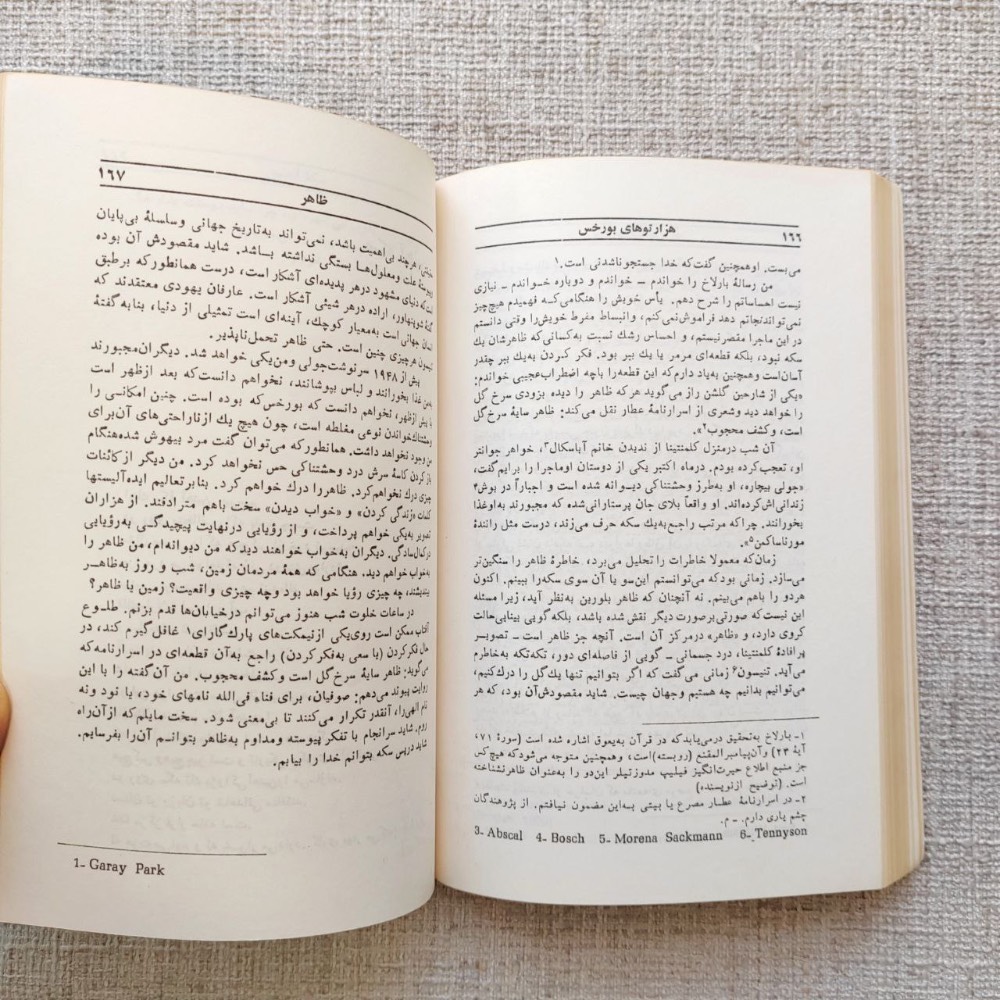 ۱۶۶
هزارتوهای بورخس
می‌بست. او همچنین گفت که خدا جستجو ناشدنی است.۱
من رسالهٔ بارلاخ را خواندم ــ خواندم و دوباره خواندم ــ نیازی
نیست احساساتم را شرح دهم. یأس خویش را هنگامی که فهمیدم هیچ‌چیز
نمی‌تواند نجاتم دهد فراموش نمی‌کنم، وانبساط مفرط خویش را وقتی دانستم
در این ماجرا مقصر نیستم، و احساس رشك نسبت به کسانی که ظاهرشان یك
سکه نبود، بلکه قطعه‌ای مرمر یا یك ببر بود. فکر کردن به یك ببر چقدر
آسان است و همچنین به‌یاد دارم که این قطعه را باچه اضطراب عجیبی خواندم:
«یکی از شارحین گلشن راز می‌گوید هر که ظاهر را دیده بزودی سرخ گل
را خواهد دید وشعری از اسرارنامهٔ عطار نقل می‌کند: ظاهر سایهٔ سرخ گل
است، و کشف محجوب۲».
آن شب درمنزل کلمنتینا از ندیدن خانم آباسکال۳، خواهر جوانتر
او، تعجب کرده بودم. درماه اکتبر یکی از دوستان اوماجرا را برایم گفت،
«جولی بیچاره، او به‌طرز وحشتناکی دیوانه شده است و اجباراً در بوش۴
زندانی‌اش کرده‌اند. او واقعاً بلای جان پرستارانی شده که مجبورند به‌اوغذا
بخورانند. چراکه مرتب راجع به‌یك سکه حرف می‌زند، درست مثل رانندهٔ
مورناساکمن۵».
زمان که معمولا خاطرات را تحلیل می‌برد، خاطرهٔ ظاهر را سنگین‌تر
می‌سازد. زمانی بود که می‌توانستم این‌سو یا آن سوی سکه را ببینم. اکنون
هردو را باهم می‌بینم. نه آنچنان که ظاهر بلورین به‌نظر آید، زیرا مسئله
این نیست که صورتی برصورت دیگر نقش شده باشد، بلکه گویی بینایی حالت
کروی دارد، و «ظاهر» درمرکز آن است. آنچه جز ظاهر است ــ تصویر
پرافادهٔ کلمنتینا، درد جسمانی ــ گویی از فاصله‌ای دور، تکه‌تکه به‌خاطرم
می‌آید. تنیسون۶ زمانی می‌گفت که اگر بتوانیم تنها یك گل را درك کنیم،
می‌توانیم بدانیم چه هستیم و جهان چیست. شاید مقصودش آن بود، که هر
۱ــ بارلاخ به‌تحقیق درمی‌یابد که در قرآن به‌یعوق اشاره شده است (سورهٔ ۷۱،
آیهٔ ۲۳) و آن پیامبر المقنع (روبسته) است، و همچنین متوجه می‌شود که هیچ کس
جز منبع اطلاع حیرت‌انگیز فیلیپ مدوز تیلر این‌دو را به‌عنوان ظاهر نشناخته
است. (توضیح ازنویسنده)
۲ــ در اسرارنامهٔ عطار مصرع یا بیتی به‌این مضمون نیافتم. از پژوهندگان
چشم یاری دارم. ــ م.
3- Abscal 4- Bosch 5- Morena Sackmann 6- Tennyson
ظاهر
۱۶۷
هرچند بی‌اهمیت باشد، نمی‌تواند به‌تاریخ جهانی وسلسلهٔ بی‌پایان
علت و معلول‌ها بستگی نداشته باشد. شاید مقصودش آن بوده
است که دنیای مشهود درهر پدیده‌ای آشکار است، درست همانطور که برطبق
گفتهٔ شوپنهاور، اراده درهر شیئی آشکار است. عارفان یهودی معتقدند که
انسان جهانی است به‌معیار کوچك، آینه‌ای است تمثیلی از دنیا، بنا به گفتهٔ
تنیسون هرچیزی چنین است. حتی ظاهر تحمل‌ناپذیر.
پیش از ۱۹۴۸ سرنوشت جولی ومن یکی خواهد شد. دیگران مجبورند
به‌من غذا بخورانند و لباس بپوشانند، نخواهم دانست که بعد ازظهر است
یا پیش ازظهر، نخواهم دانست که بورخس که بوده است. چنین امکانی را
وحشتناك خواندن نوعی مغلطه است، چون هیچ یك ازناراحتی‌های آن برای
من وجود نخواهد داشت. همانطور که می‌توان گفت مرد بیهوش شده هنگام
باز کردن کاسهٔ سرش درد وحشتناکی حس نخواهد کرد. من دیگر از کائنات
چیزی درك نخواهم کرد. ظاهر را درك خواهم کرد. بنابر تعالیم ایده‌آلیستها
کلمات «زندگی کردن» و «خواب دیدن» سخت باهم مترادفند. از هزاران
تصویر به‌یکی خواهم پرداخت، و از رؤیایی درنهایت پیچیدگی به‌رؤیایی
در کمال سادگی. دیگران به‌خواب خواهند دید که من دیوانه‌ام، من ظاهر را
به‌خواب خواهم دید. هنگامی که همهٔ مردمان زمین، شب و روز به‌ظاهر
بیندیشند، چه چیزی رؤیا خواهد بود وچه چیزی واقعیت؟ زمین یا ظاهر؟
در ساعات خلوت شب هنوز می‌توانم درخیابان‌ها قدم بزنم. طلوع
آفتاب ممکن است روی یکی از نیمکت‌های پارك گارای۱ غافل گیرم کند، در
حال فکر کردن (یا سعی به‌فکر کردن) راجع به‌آن قطعه‌ای در اسرارنامه که
می‌گوید: ظاهر سایهٔ سرخ گل است و کشف محجوب. من آن گفته را با این
روایت پیوند می‌دهم: صوفیان، برای فناء فی‌الله نامهای خود، یا نود ونه
نام الهی را، آنقدر تکرار می‌کنند تا بی‌معنی شود. سخت مایلم که از آن راه
روم. شاید سرانجام با تفکر پیوسته ومداوم به‌ظاهر بتوانم آن را بفرسایم.
شاید درپس سکه بتوانم خدا را بیابم.
1- Garay Park